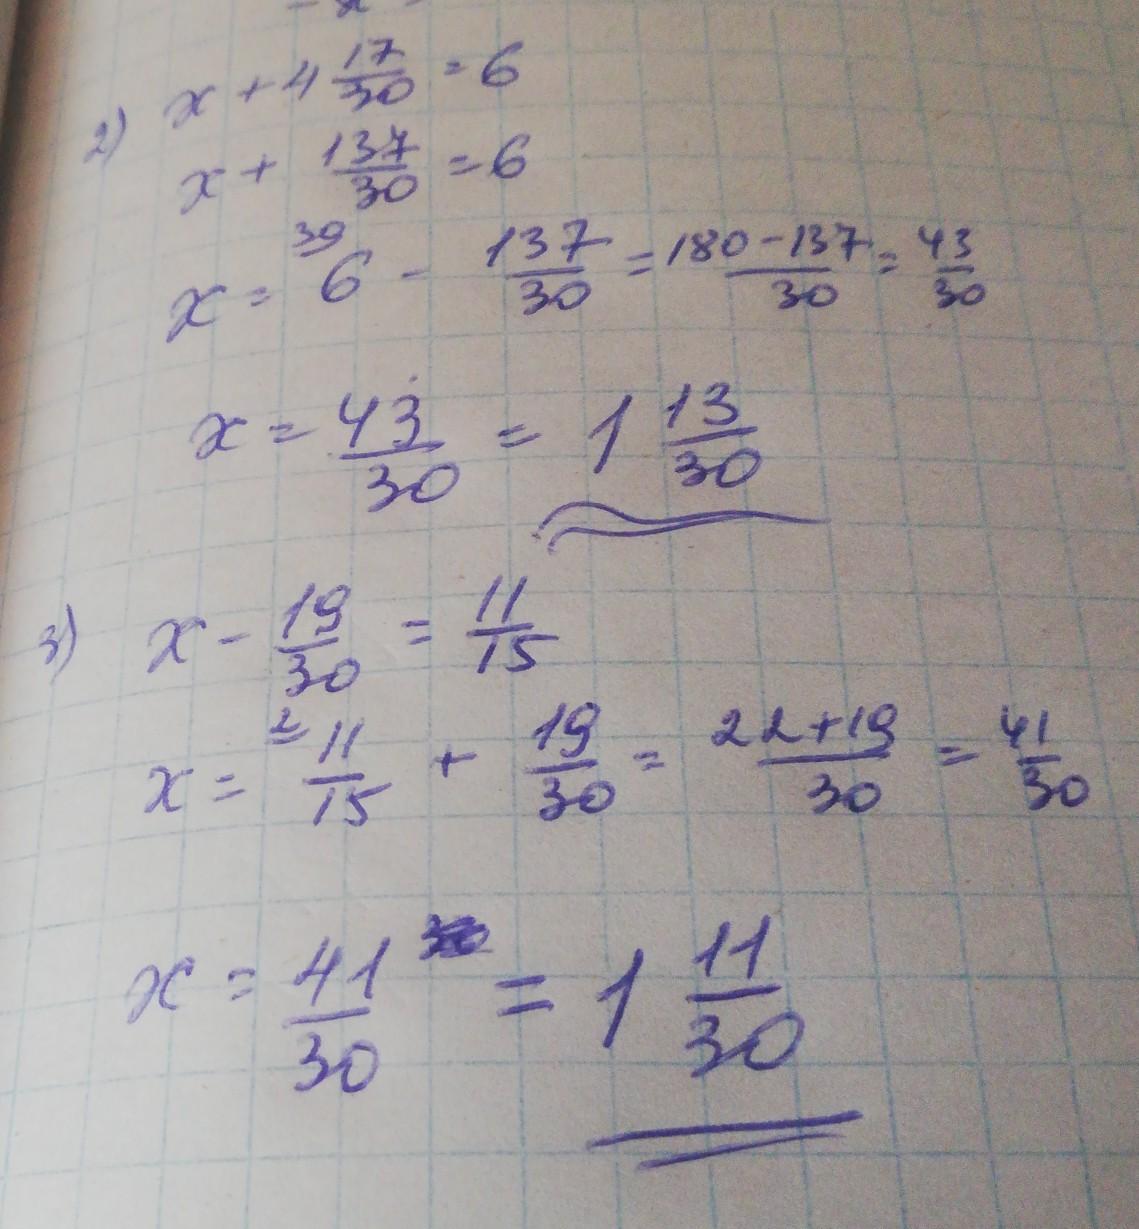 2) x + 4 17/30 = 6
x + 137/30 = 6
x = 30 6 - 137/30 = 180-137/30 = 43/30
x = 43/30 = 1 13/30
3) x - 19/30 = 11/15
x = 2 11/15 + 19/30 = 22+19/30 = 41/30
x = 41/30 = 1 11/30